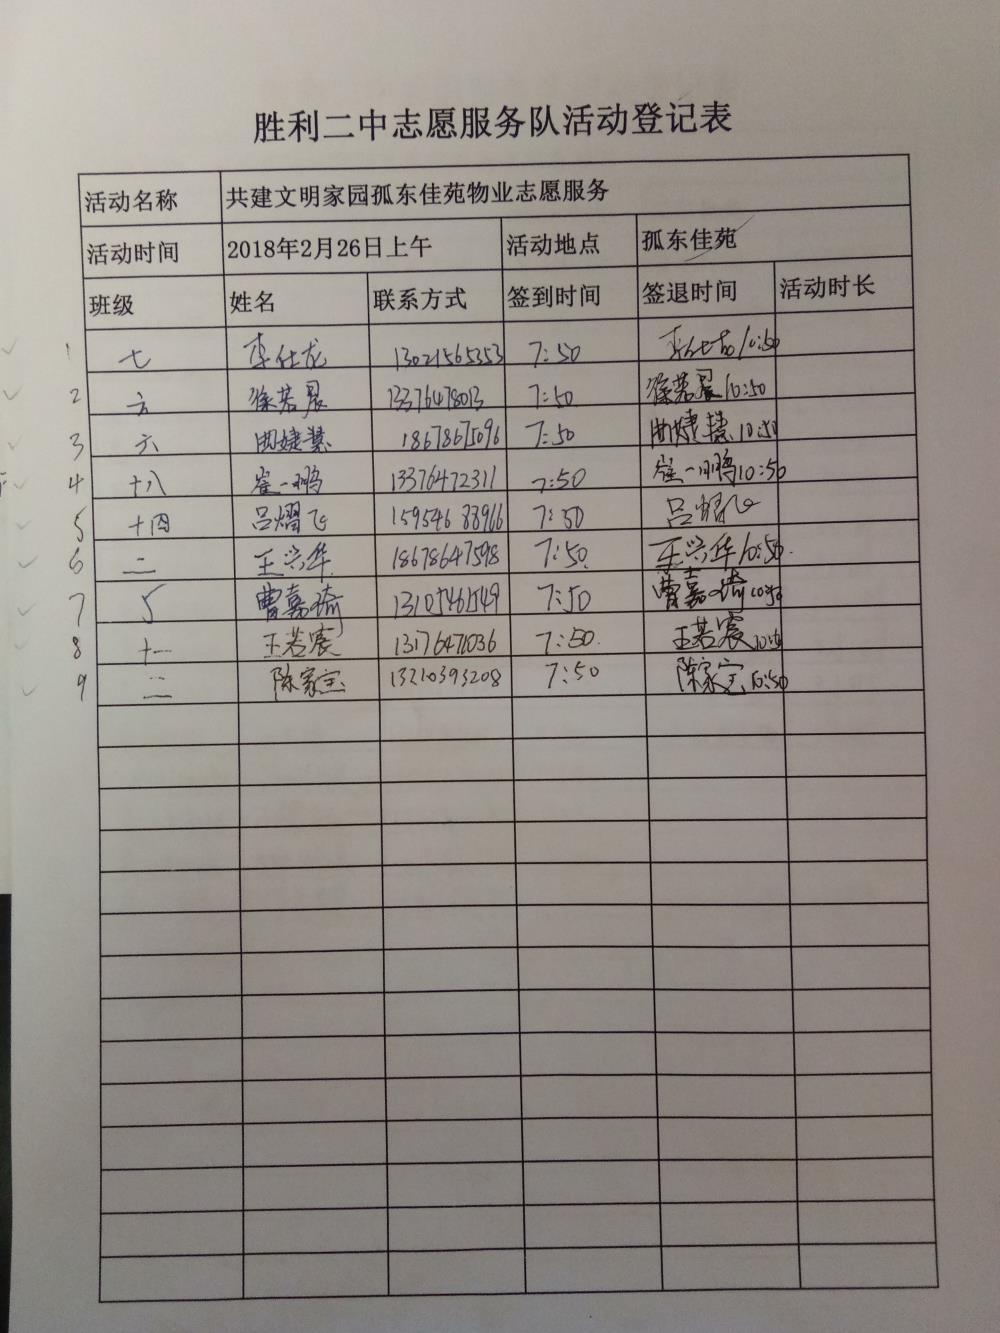 胜利二中志愿服务队活动登记表
活动名称 共建文明家园孤东佳苑物业志愿服务
活动时间 2018年2月26日上午 活动地点 孤东佳苑
班级 姓名 联系方式 签到时间 签退时间 活动时长
1 七 李仕龙 13021565353 7:50 李仕龙 10:50
2 六 徐若晨 13376478013 7:50 徐若晨 10:50
3 六 曲婕慧 18678675096 7:50 曲婕慧 10:50
4 十八 崔一鹏 13376472311 7:50 崔一鹏 10:50
5 十四 吕熠飞 15954688966 7:50 吕熠飞
6 二 王兴华 18678647598 7:50 王兴华 10:50.
7 5 曹嘉琦 13105461549 7:50 曹嘉琦
8 十一 王若震 7:50. 王若震
9 二 陈家宝 13210393208 7:50 陈家宝 10:50